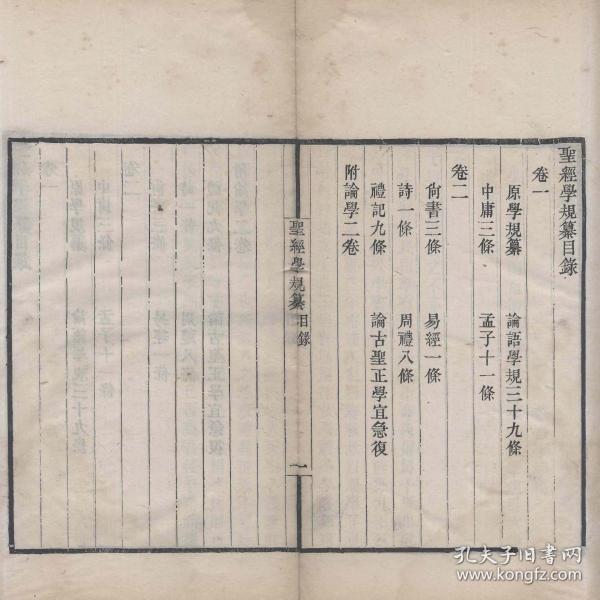 聖經學規纂目錄
卷一
原學規纂 論語學規三十九條
中庸三條 孟子十一條
卷二
尚書三條 易經一條
詩一條 周禮八條
禮記九條 論古聖正學宜急復
附論學二卷
聖經學規纂 目錄 一
孔夫子旧书网
www.kongfz.com